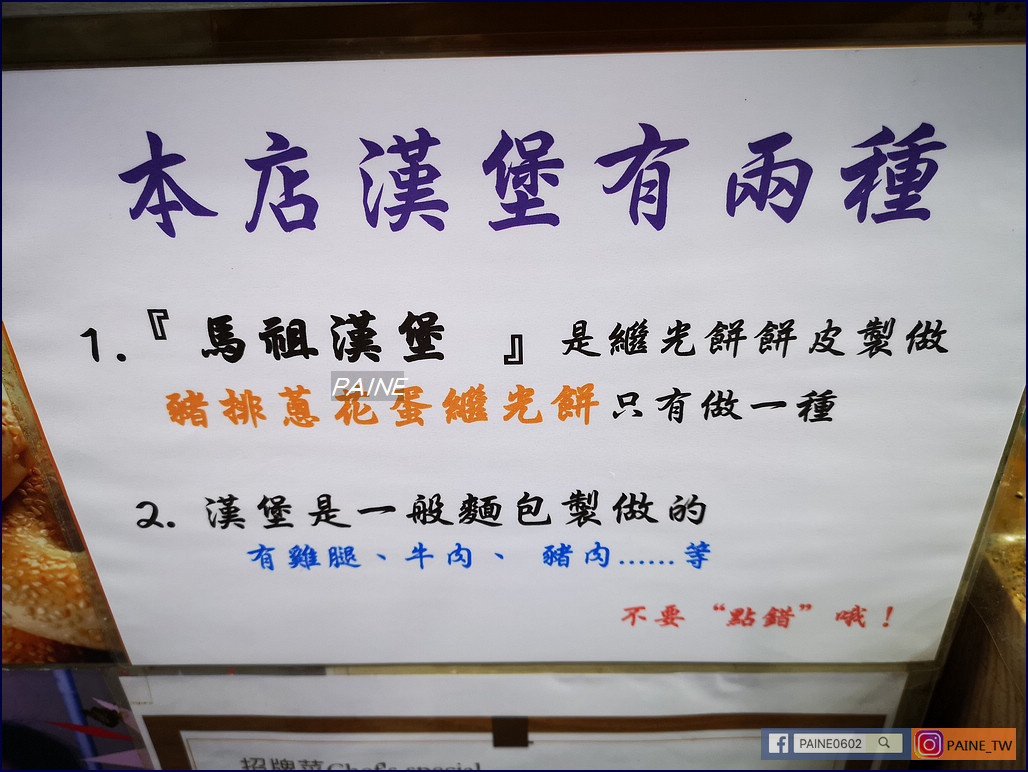 本店漢堡有兩種
1.『馬祖漢堡 』是繼光餅餅皮製做
PAINE
豬排蔥花蛋繼光餅只有做一種
2. 漢堡是一般麵包製做的
有雞腿、牛肉、 豬肉……等
不要“點錯”哦！
招牌菜Chef's special
PAINE0602
PAINE_TW